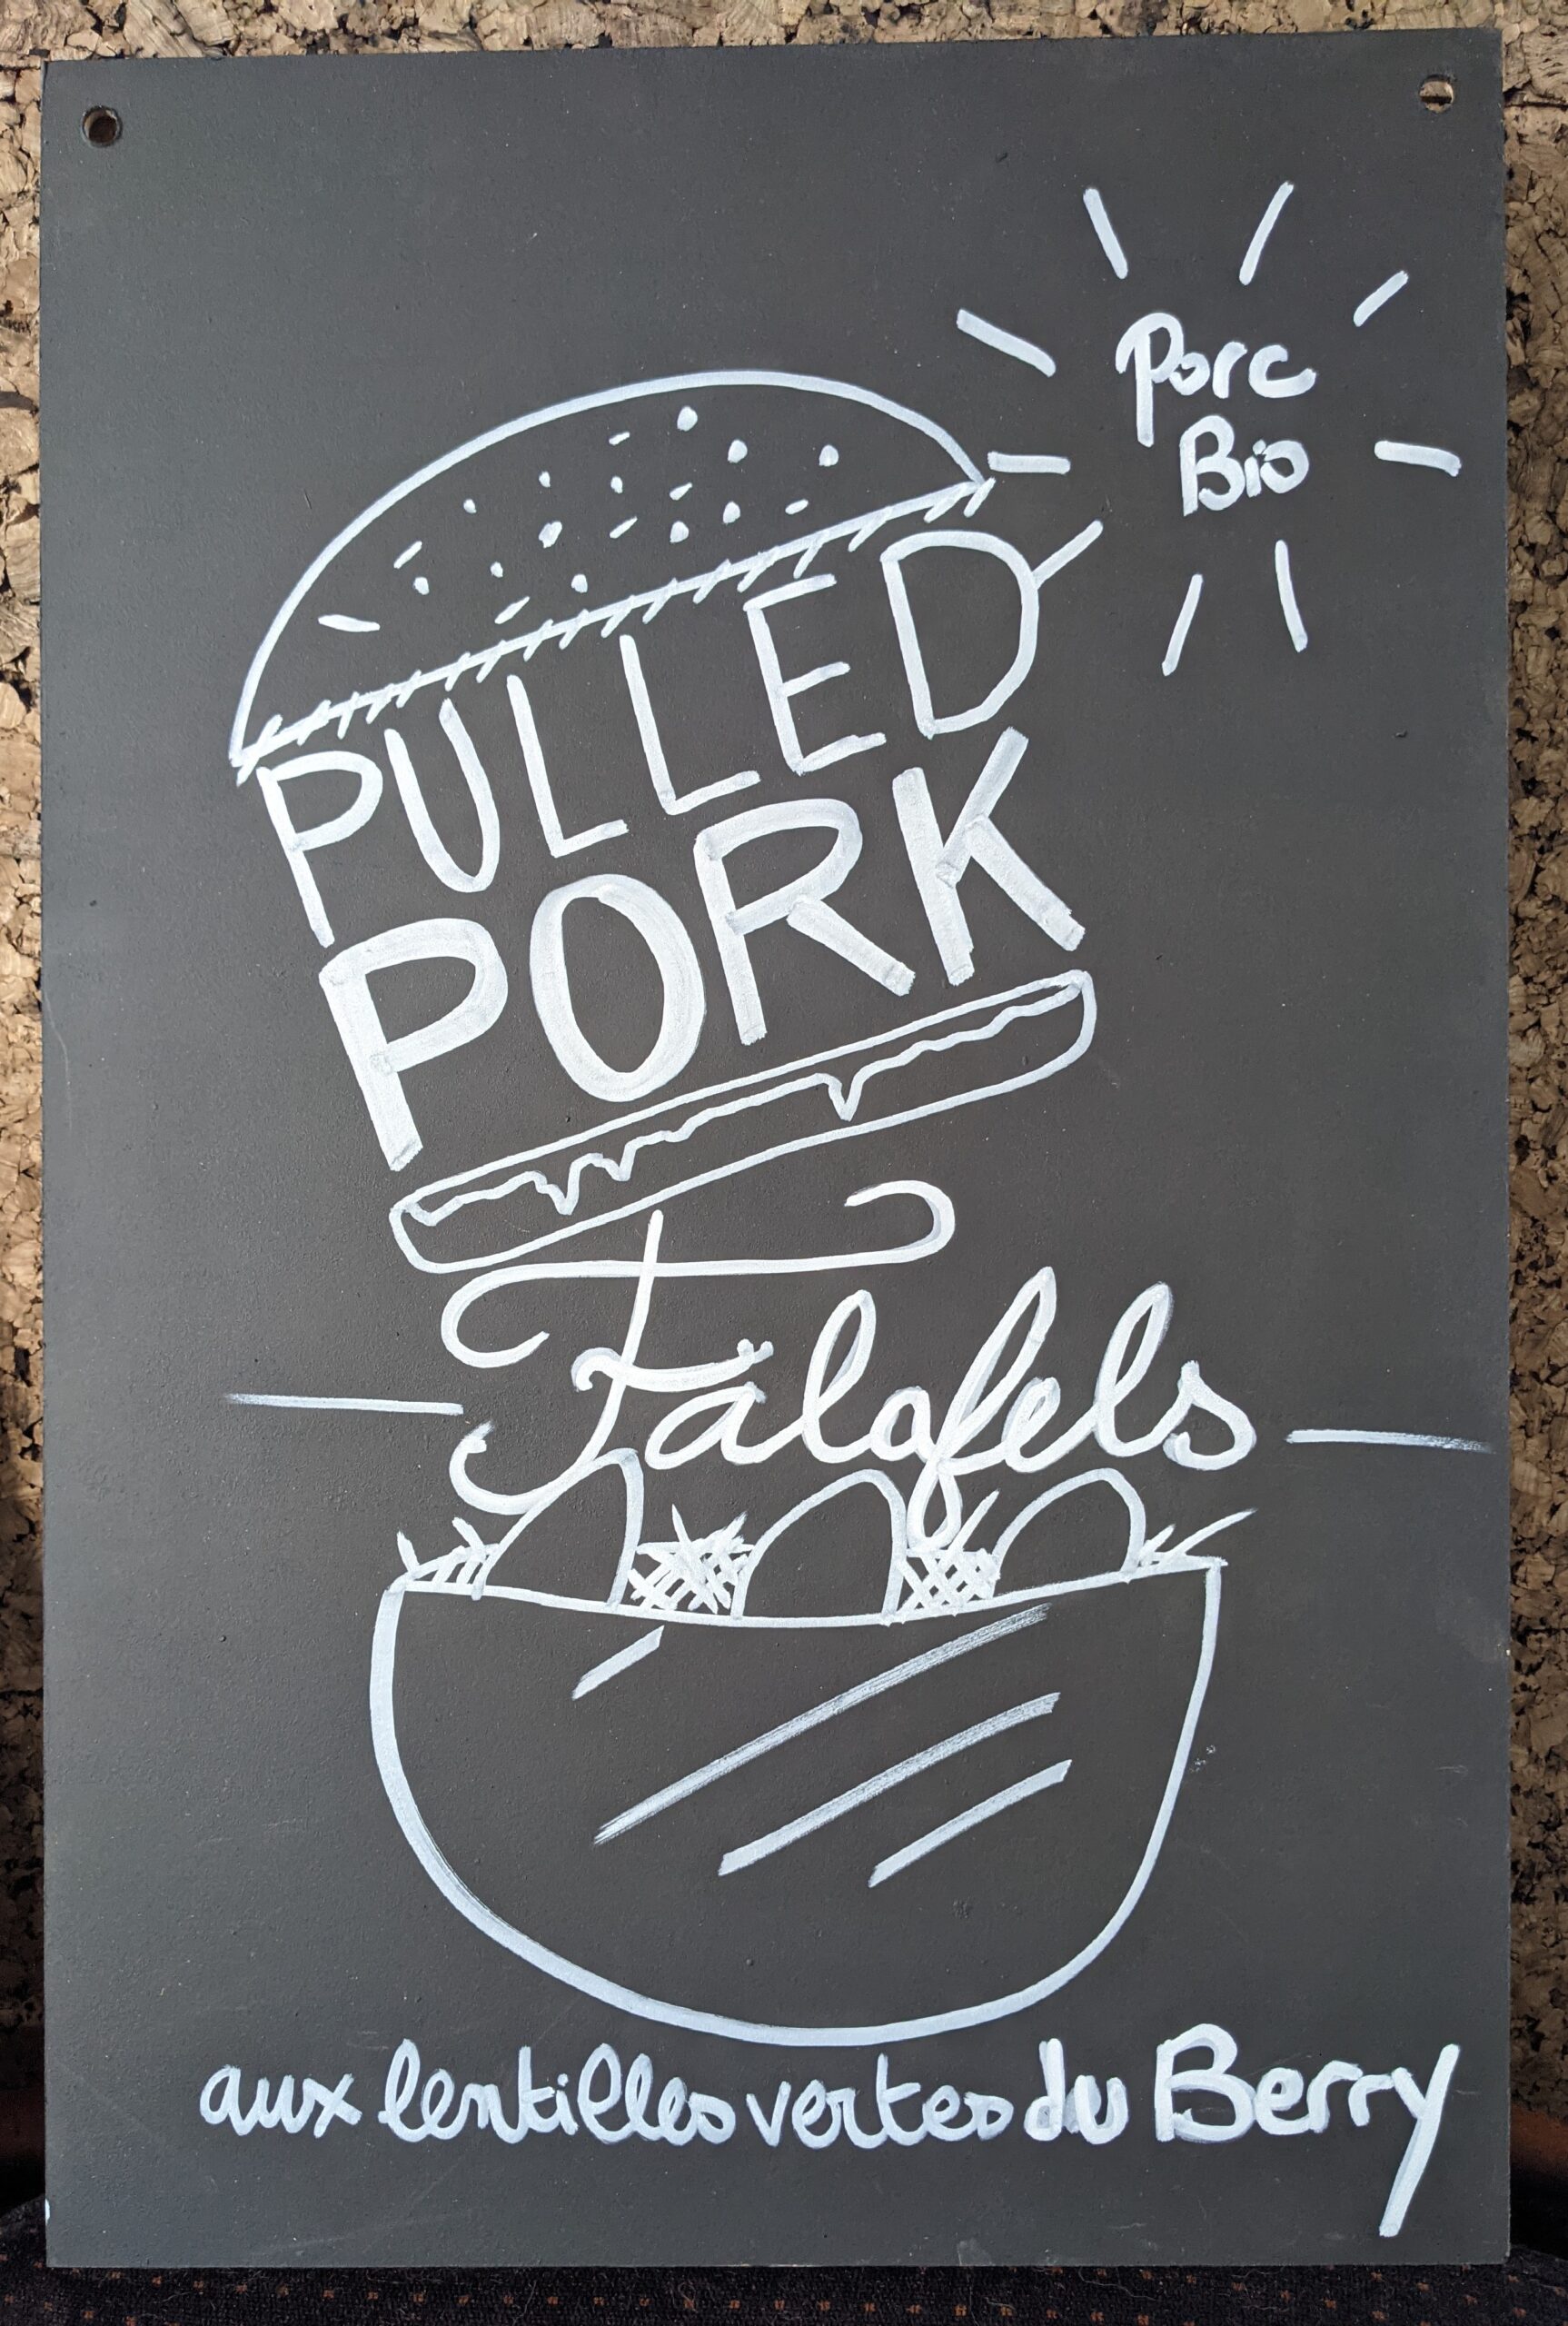 Porc
Bio
PULLED
PORK
Falafels
aux lentilles vertes du Berry